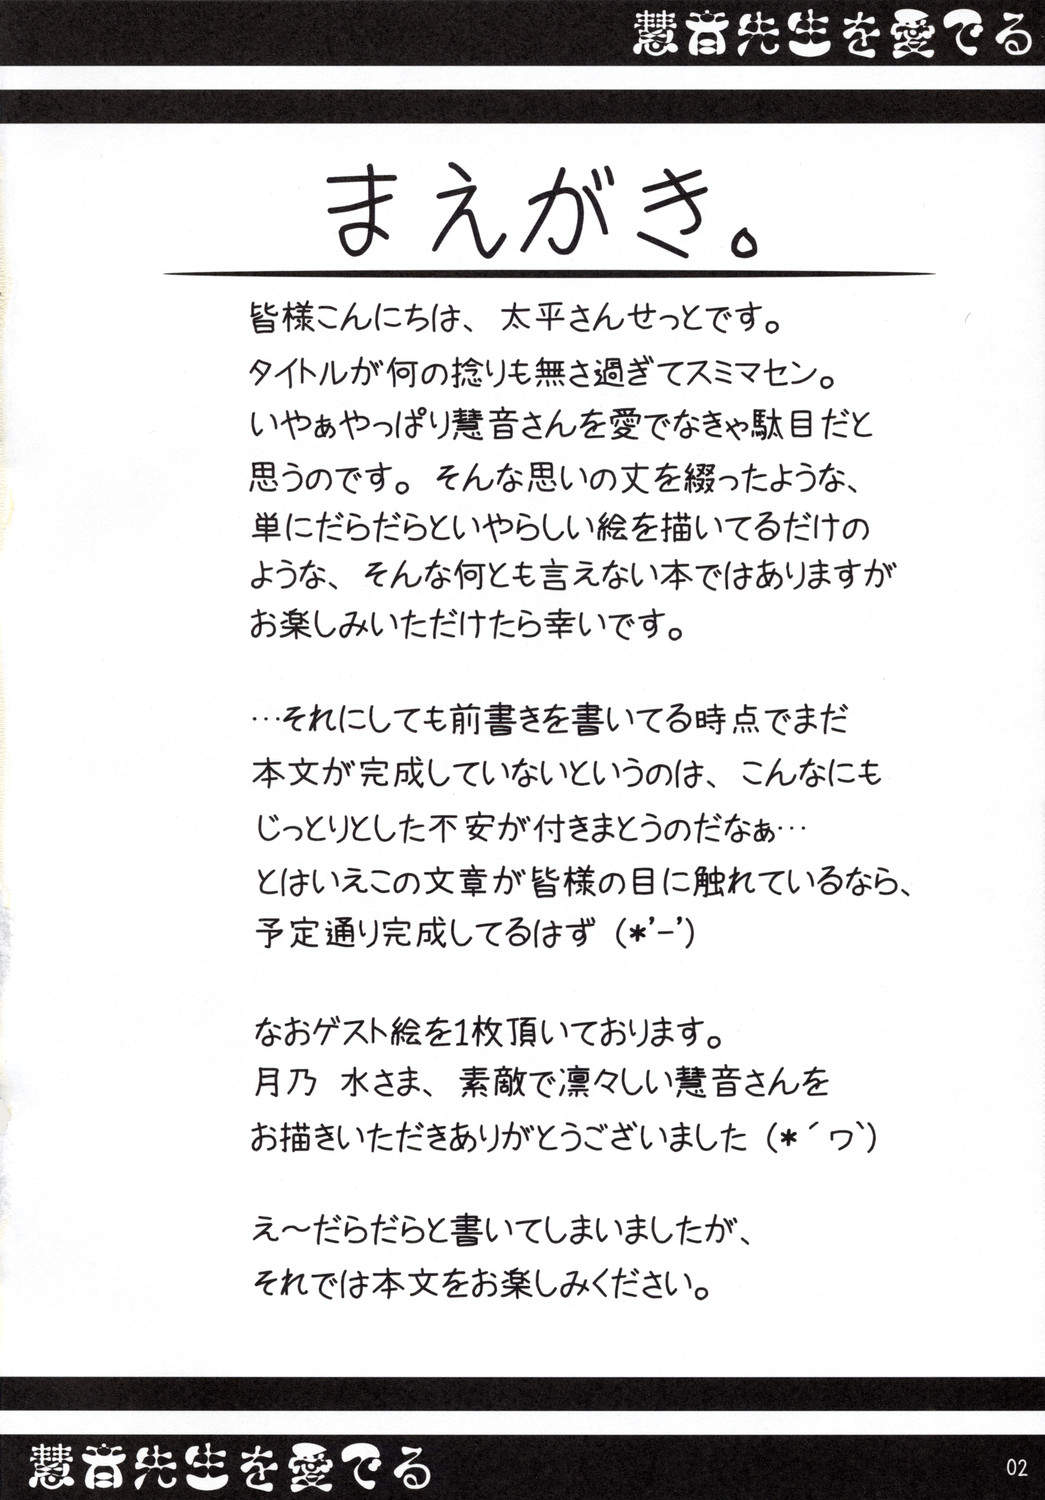 慧音先生を愛でる
まえがき。
皆様こんにちは、太平さんせっとです。
タイトルが何の捻りも無さ過ぎてスミマセン。
いやぁやっぱり慧音さんを愛でなきゃ駄目だと
思うのです。そんな思いの丈を綴ったような、
単にだらだらといやらしい絵を描いてるだけの
ような、そんな何とも言えない本ではありますが
お楽しみいただけたら幸いです。
…それにしても前書きを書いてる時点でまだ
本文が完成していないというのは、こんなにも
じっとりとした不安が付きまとうのだなぁ…
とはいえこの文章が皆様の目に触れているなら、
予定通り完成してるはず (*'-')
なおゲスト絵を1枚頂いております。
月乃 水さま、素敵で凛々しい慧音さんを
お描きいただきありがとうございました (*´ワ`)
え〜だらだらと書いてしまいましたが、
それでは本文をお楽しみください。
慧音先生を愛でる
02